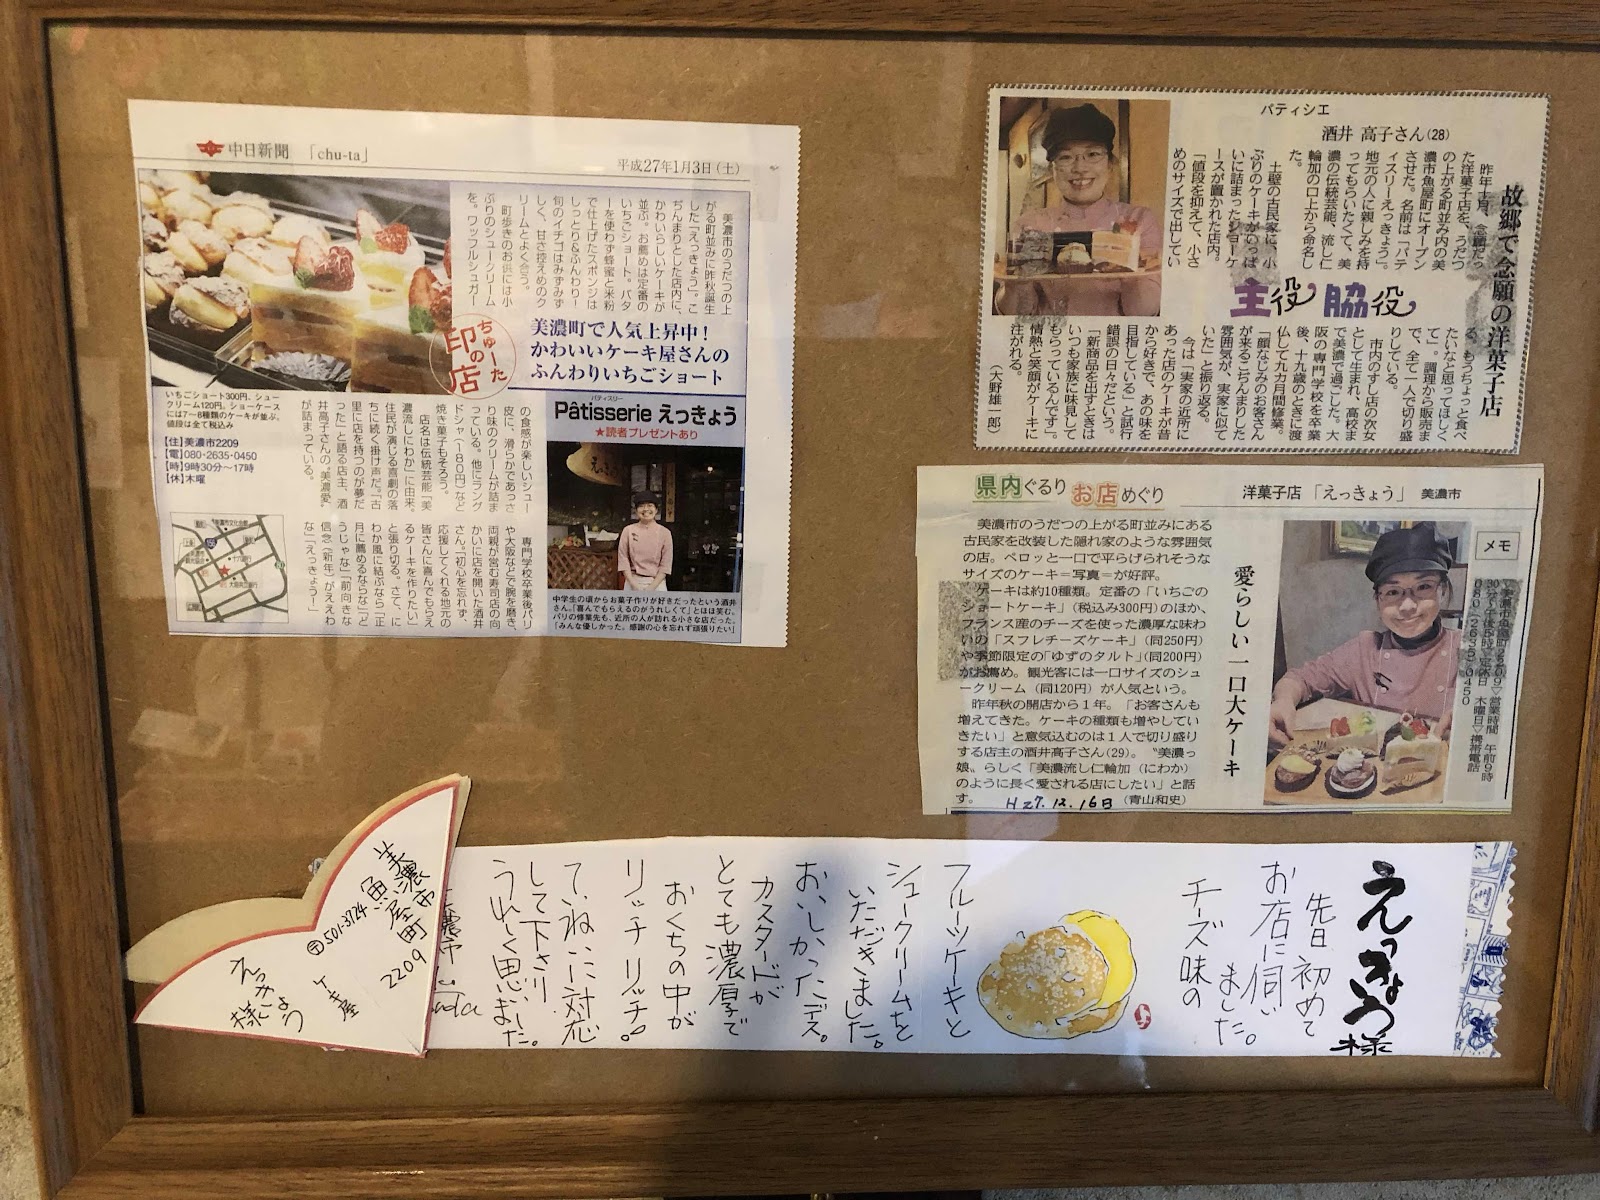 中日新聞 「chu-ta」
平成27年1月3日(土)
美濃市のうだつの上
がる町並みに昨秋誕生
した「えっきょう」。こ
ぢんまりとした店内に、
かわいらしいケーキが
並ぶ。お薦めは定番の
いちごショート。バタ
ーを使わず蜂蜜と米粉
で仕上げたスポンジは
しっとり&ふんわり!
旬のイチゴはみずみず
しく、甘さ控えめのク
リームとよく合う。
町歩きのお供には小
ぶりのシュークリーム
を。ワッフルシュガー
ちゅーた
印の店
美濃町で人気上昇中!
かわいいケーキ屋さんの
ふんわりいちごショート
いちごショート300円、シュー
クリーム120円。ショーケース
には7〜8種類のケーキが並ぶ。
値段は全て税込み
【住】美濃市2209
【電】080・2635・0450
【時】9時30分〜17時
【休】木曜
パティスリー
Pâtisserie えっきょう
★読者プレゼントあり
の食感が楽しいシュー
皮に、滑らかであっさ
り味のクリームが詰ま
っている。他にラング
ドシャ(180円)など
焼き菓子もそろう。
店名は伝統芸能「美
濃流しにわか」に由来。
住民が演じる喜劇の落
ちに続く掛け声だ。「古
里に店を持つのが夢だ
った」と語る店主、酒
井高子さんの〝美濃愛〟
が詰まっている。
専門学校卒業後パリ
や大阪などで腕を磨き、
両親が営む寿司店の向
かいに店を開いた酒井
さん。「初心を忘れず、
応援してくれる地元の
皆さんに喜んでもらえ
るケーキを作りたい」
と張り切る。さて、に
わか風に結ぶなら「正
月に薦めるならな」「ど
うじゃな」「前向きな
信念(新年)がええわ
な」「えっきょうー!」
中学生の頃からお菓子作りが好きだったという酒井
さん。「喜んでもらえるのがうれしくて」とほほ笑む。
パリの修業先も、近所の人が訪れる小さな店だった。
「みんな優しかった。感謝の心を忘れず頑張りたい」
パティシエ
酒井 高子さん(28)
故郷で念願の洋菓子店
た洋菓子店を、うだつ
の上がる町並み内の美
濃市魚屋町にオープン
させた。名前は「パテ
ィスリーえっきょう」。
地元の人に親しみを持
ってもらいたくて、美
濃の伝統芸能、流し仁
輪加の口上から命名し
た。
土壁の古民家に、小
ぶりのケーキがのっぱ
いに詰まったショーケ
ースが置かれた店内。
「値段を抑えて、小さ
めのサイズで出してい
主役 脇役
る。もうちょっと食べ
たいなと思ってほしく
て」。調理から販売ま
で、全て一人で切り盛
りしている。
市内のすし店の次女
として生まれ、高校ま
で美濃で過ごした。大
阪の専門学校を卒業
後、十九歳のときに渡
仏して九カ月間修業。
「顔なじみのお客さん
が来るこぢんまりした
雰囲気が、実家に似て
いた」と振り返る。
今は「実家の近所に
あった店のケーキが昔
から好きで、あの味を
目指している」と試行
錯誤の日々だという。
「新商品を出すときは
いつも家族に味見して
もらっているんです」。
情熱と笑顔がケーキに
注がれる。
(大野雄一郎)
県内ぐるり お店めぐり
洋菓子店 「えっきょう」 美濃市
美濃市のうだつの上がる町並みにある
古民家を改装した隠れ家のような雰囲気
の店。ペロッと一口で平らげられそうな
サイズのケーキ=写真=が好評。
ケーキは約10種類。定番の「いちごの
ショートケーキ」(税込み300円)のほか、
フランス産のチーズを使った濃厚な味わ
いの「スフレチーズケーキ」(同250円)
や季節限定の「ゆずのタルト」(同200円)
がお薦め。観光客には一口サイズのシュ
ークリーム(同120円)が人気という。
昨年秋の開店から1年。「お客さんも
増えてきた。ケーキの種類も増やしてい
きたい」と意気込むのは1人で切り盛り
する店主の酒井高子さん(29)。〝美濃っ
娘〟らしく「美濃流し仁輪加(にわか)
のように長く愛される店にしたい」と話
す。
H27.12.16日
(青山和史)
愛らしい一口大ケーキ
メモ
えっきょう様
先日初めて
お店に伺い
ました。
チーズ味の
フルーツケーキと
シュークリームを
いただきました。
おいしかったデス。
カスタードが
とても濃厚で
おくちの中が
リッチリッチ!
ていねいに対応
して下さり
うれしく思いました。
〒501-3724
美濃市
魚屋町
2209
ケーキ屋
えっきょう
様